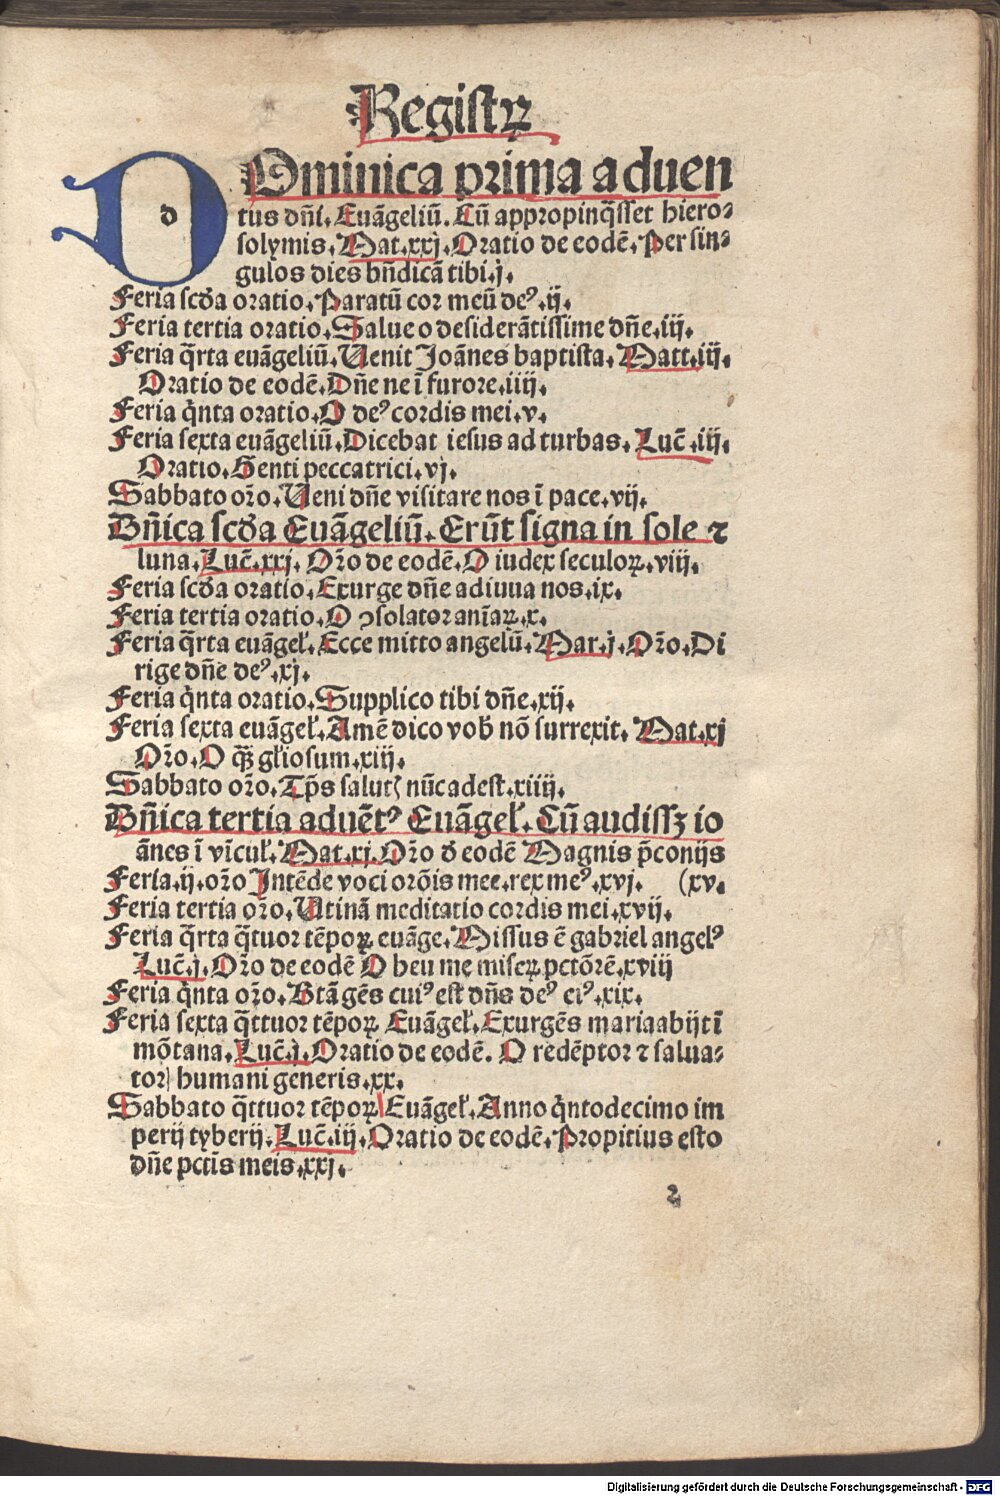 Registrꝝ
DOminica prima aduen
tus dñi. Euãgeliũ. Cũ appropinq̃sset hiero⸗
solymis. Mat.xxj. Oratio de eodẽ. Per sin⸗
gulos dies bñdicã tibi.j.
Feria scḋa oratio. Paratũ cor meũ deꝰ.ij.
Feria tertia oratio. Salue o desiderãtissime dñe.iij.
Feria q̃rta euãgeliũ. Uenit Joãnes baptista. Matt.iij.
Oratio de eodẽ. Dñe ne ĩ furore.iiij.
Feria q̇nta oratio. O deꝰ cordis mei.v.
Feria sexta euãgeliũ. Dicebat iesus ad turbas. Luc̃.iij.
Oratio. Genti peccatrici.vj.
Sabbato or̃o. Ueni dñe visitare nos ĩ pace.vij.
Dñica scḋa Euãgeliũ. Erũt signa in sole ⁊
luna. Luc̃.xxj. Or̃o de eodẽ. O iudex seculoꝝ.viij.
Feria scḋa oratio. Exurge dñe adiuua nos.ix.
Feria tertia oratio. O ↄsolator anĩaꝝ.x.
Feria q̃rta euãgeł. Ecce mitto angelũ. Mar.j. Or̃o. Di
rige dñe deꝰ.xj.
Feria q̇nta oratio. Supplico tibi dñe.xij.
Feria sexta euãgeł. Amẽ dico vob̃ nõ surrexit. Mat.xj
Or̃o. O q̃ꝫ gl̃iosum.xiij.
Sabbato or̃o. Tp̃s salutꝭ nũc adest.xiiij.
Dñica tertia aduẽtꝰ Euãgeł. Cũ audissꝫ io
ãnes ĩ vĩcuł. Mat.xj. Or̃o ḋ eodẽ Magnis p̃conijs
Feria.ij.or̃o Intẽde voci orõis mee.rex meꝰ.xvj. (xv.
Feria tertia or̃o. Utinã meditatio cordis mei.xvij.
Feria q̃rta q̃tuor tẽpoꝝ euãge. Missus ẽ gabriel angelꝰ
Luc̃.j. Or̃o de eodẽ O heu me miseꝝ pctõrẽ.xviij
Feria q̇nta or̃o. Btã gẽs cuiꝰ est dñs deꝰ eiꝰ.xix.
Feria sexta q̃ttuor tẽpoꝝ Euãgeł. Exurgẽs maria abijt ĩ
mõtana. Luc̃.j. Oratio de eodẽ. O redẽptor ⁊ salua⸗
tor humani generis.xx.
Sabbato q̃ttuor tẽpoꝝ Euãgeł. Anno q̇ntodecimo im
perij tyberij. Luc̃.iij. Oratio de eodẽ. Propitius esto
dñe pctĩs meis.xxj.
2
Digitalisierung gefördert durch die Deutsche Forschungsgemeinschaft - DFG